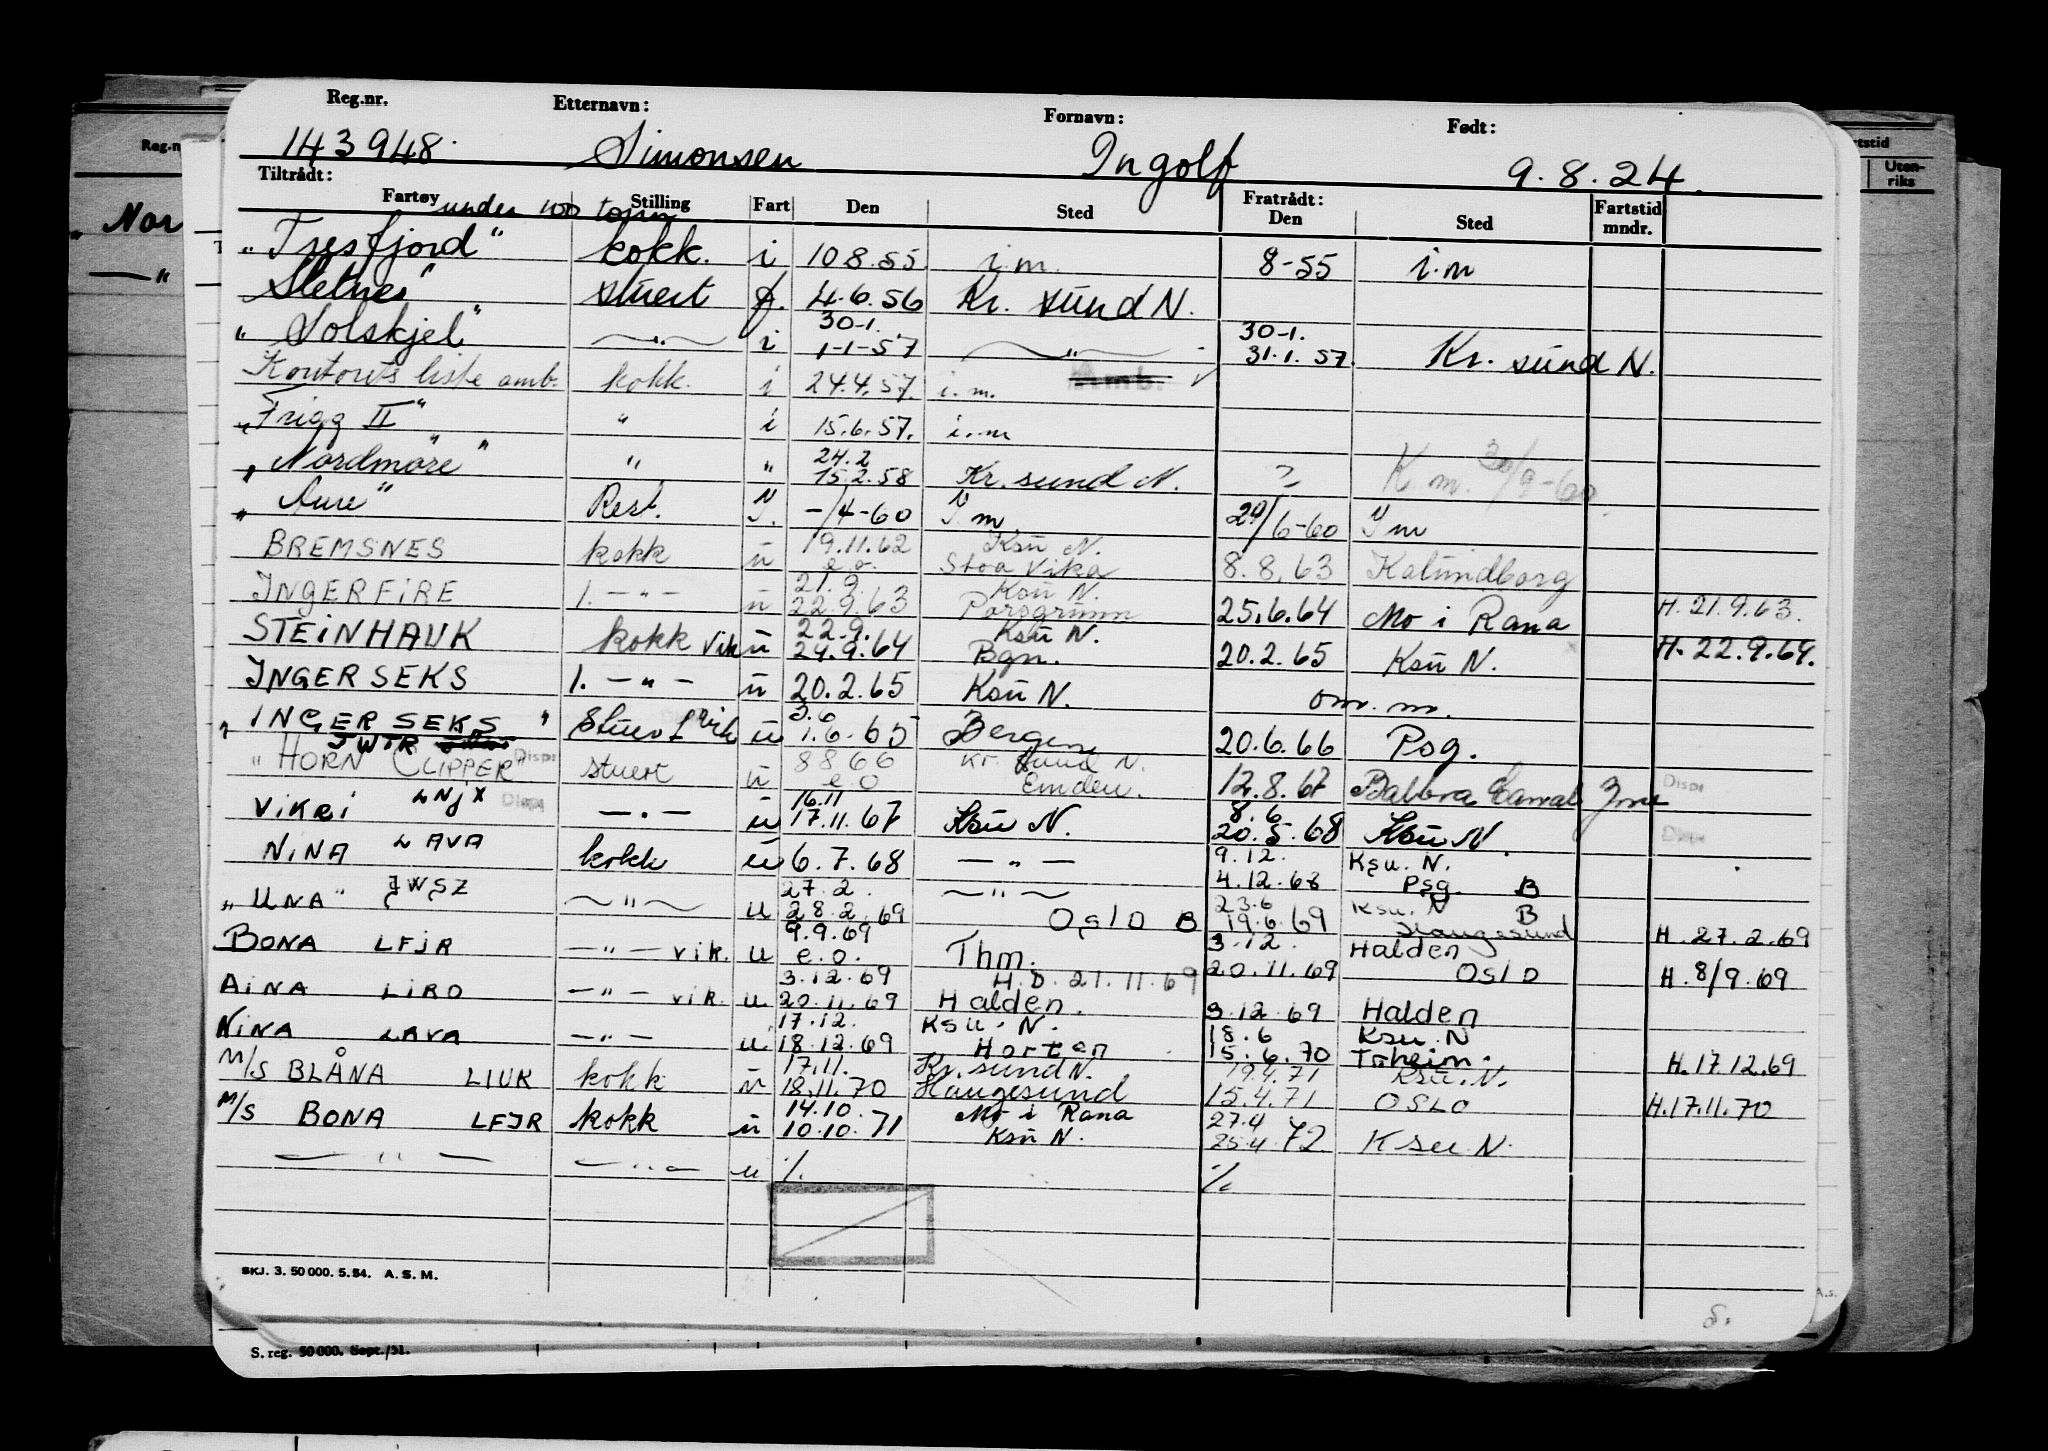 Reg.nr. Etternavn: Fornavn: Født:
143948. Simonsen Ingolf 9.8.24.
Tiltrådt: Fratrådt:
Fartøy Stilling Fart Den Sted Den Sted Fartstid mndr.
under 100 tonn
"Tresfjord" kokk. i 10 8.55 i.m. 8-55 i.m
Sletnes" stuert f. 4.6.56 Kr. sund N.
30-1. 30-1.
"Solskjel" —"— i 1-1-57 —"— 31.1.57. Kr. sund N.
Kontorets liste amb. kokk. i 24.4.57. i.m. Amb.
"Frigg II" " i 15.6.57. i.m
24.2
"Nordmøre" " " 15.2.58 Kr. sund N. ? K m. 30/9-60
"Aure" Rest. I. -/4-60 I m. 29/6-60 I m
19.11.62 Ksu N.
BREMSNES kokk u e.o. Stoa Vika 8.8.63 Kalundborg
21.9. Ksu N.
INGERFIRE 1. -"- u 22.9.63 Porsgrunn 25.6.64 Mo i Rana H. 21.9.63.
22.9. Ksu N.
STEINHAUK kokk vik u 24.9.64 Bgn. 20.2.65 Ksu N. H. 22.9.64.
INGERSEKS 1. -"- u 20.2.65 Ksu N. om. m.
3.6
"INGERSEKS" Stuert vik u 1.6.65 Bergen 20.6.66 Psg.
JWTR
"HORN CLIPPER" Disp stuert u 8 8 66 Kr. sund N.
e o Emden. 12.8.67 Balboa Canal Zone Disp
16.11 8.6
VIKRI LNJX Disp -"- u 17.11.67 Ksu N. 20.5.68 Ksu N. Disp
9.12. Ksu. N.
NINA LAVA kokk u 6.7.68 -"- 4.12.68 Psg. B
27.2. —"— 23.6 Ksu. N
"UNA" JWSZ —"— u 28.2.69 Oslo B 19.6.69 Haugesund B H. 27.2.69
9.9.69 3.12. Halden
BONA LFJR -"- vik. u e.o. Thm. 20.11.69 Oslo H. 8/9.69
3.12.69 H.D. 21.11.69
AINA LIRO -"- vik. u. 20.11.69 Halden. 3.12.69 Halden
17.12. Ksu. N. 18.6 Ksu. N
NINA LAVA -"- u 18.12.69 Horten 15.6.70 Trheim. H.17.12.69
17.11. Kr.sund N. 19.4.71 Ksu. N.
M/S BLÅNA LIUK kokk u 18.11.70 Haugesund 15.4.71 OSLO H.17.11.70
14.10. Mo i Rana 27.4
M/S BONA LFJR kokk u 10.10.71 Ksu N. 25.4.72 Ksu N.
— " — — " — u %. %.
SKJ. 3. 50 000. 5.54. A.S.M.
S.
S. reg. 50 000. Sept./51.
Reg.n
Nor
—"
Uten-
riks
A.s.